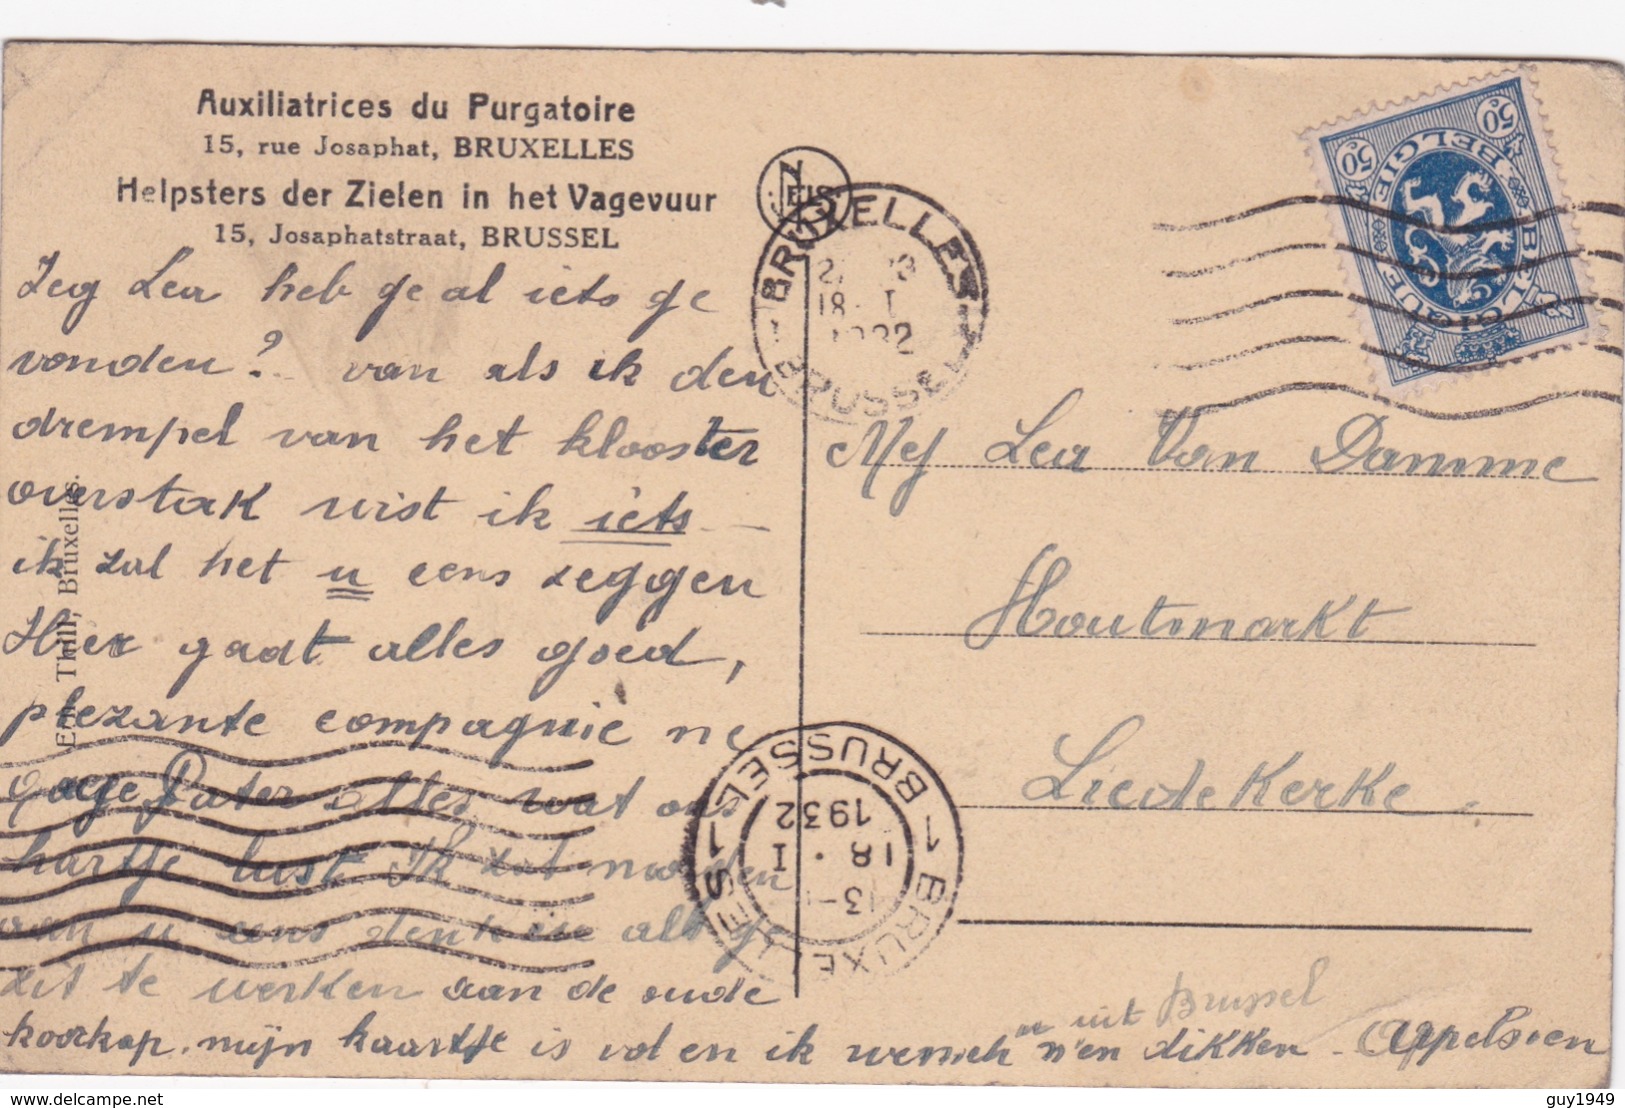 Auxiliatrices du Purgatoire
15, rue Josaphat, BRUXELLES
Helpsters der Zielen in het Vagevuur
15, Josaphatstraat, BRUSSEL
Zeg Lea heb ge al iets ge
vonden? van als ik den
drempel van het klooster
overstak wist ik iets
ik zal het u eens zeggen
Hier gaat alles goed,
plezante compagnie ne
Pater alles wat ons
hartje lust. Ik zal morgen
van u eens denken als ge
zit te werken aan de oude
koorkap. mijn kaartje is vol en ik wensch u n'en dikken Appelsien
uit Brussel
Ern. Thill, Bruxelles.
BRUXELLES
18 I
1932
BRUSSEL
BRUXELLES 1 BRUSSEL 1
13-
18. I
1932
BELGIE BELGIQUE
50c 50c
Mej Lea Van Damme
Houtmarkt
Liedekerke.
guy1949